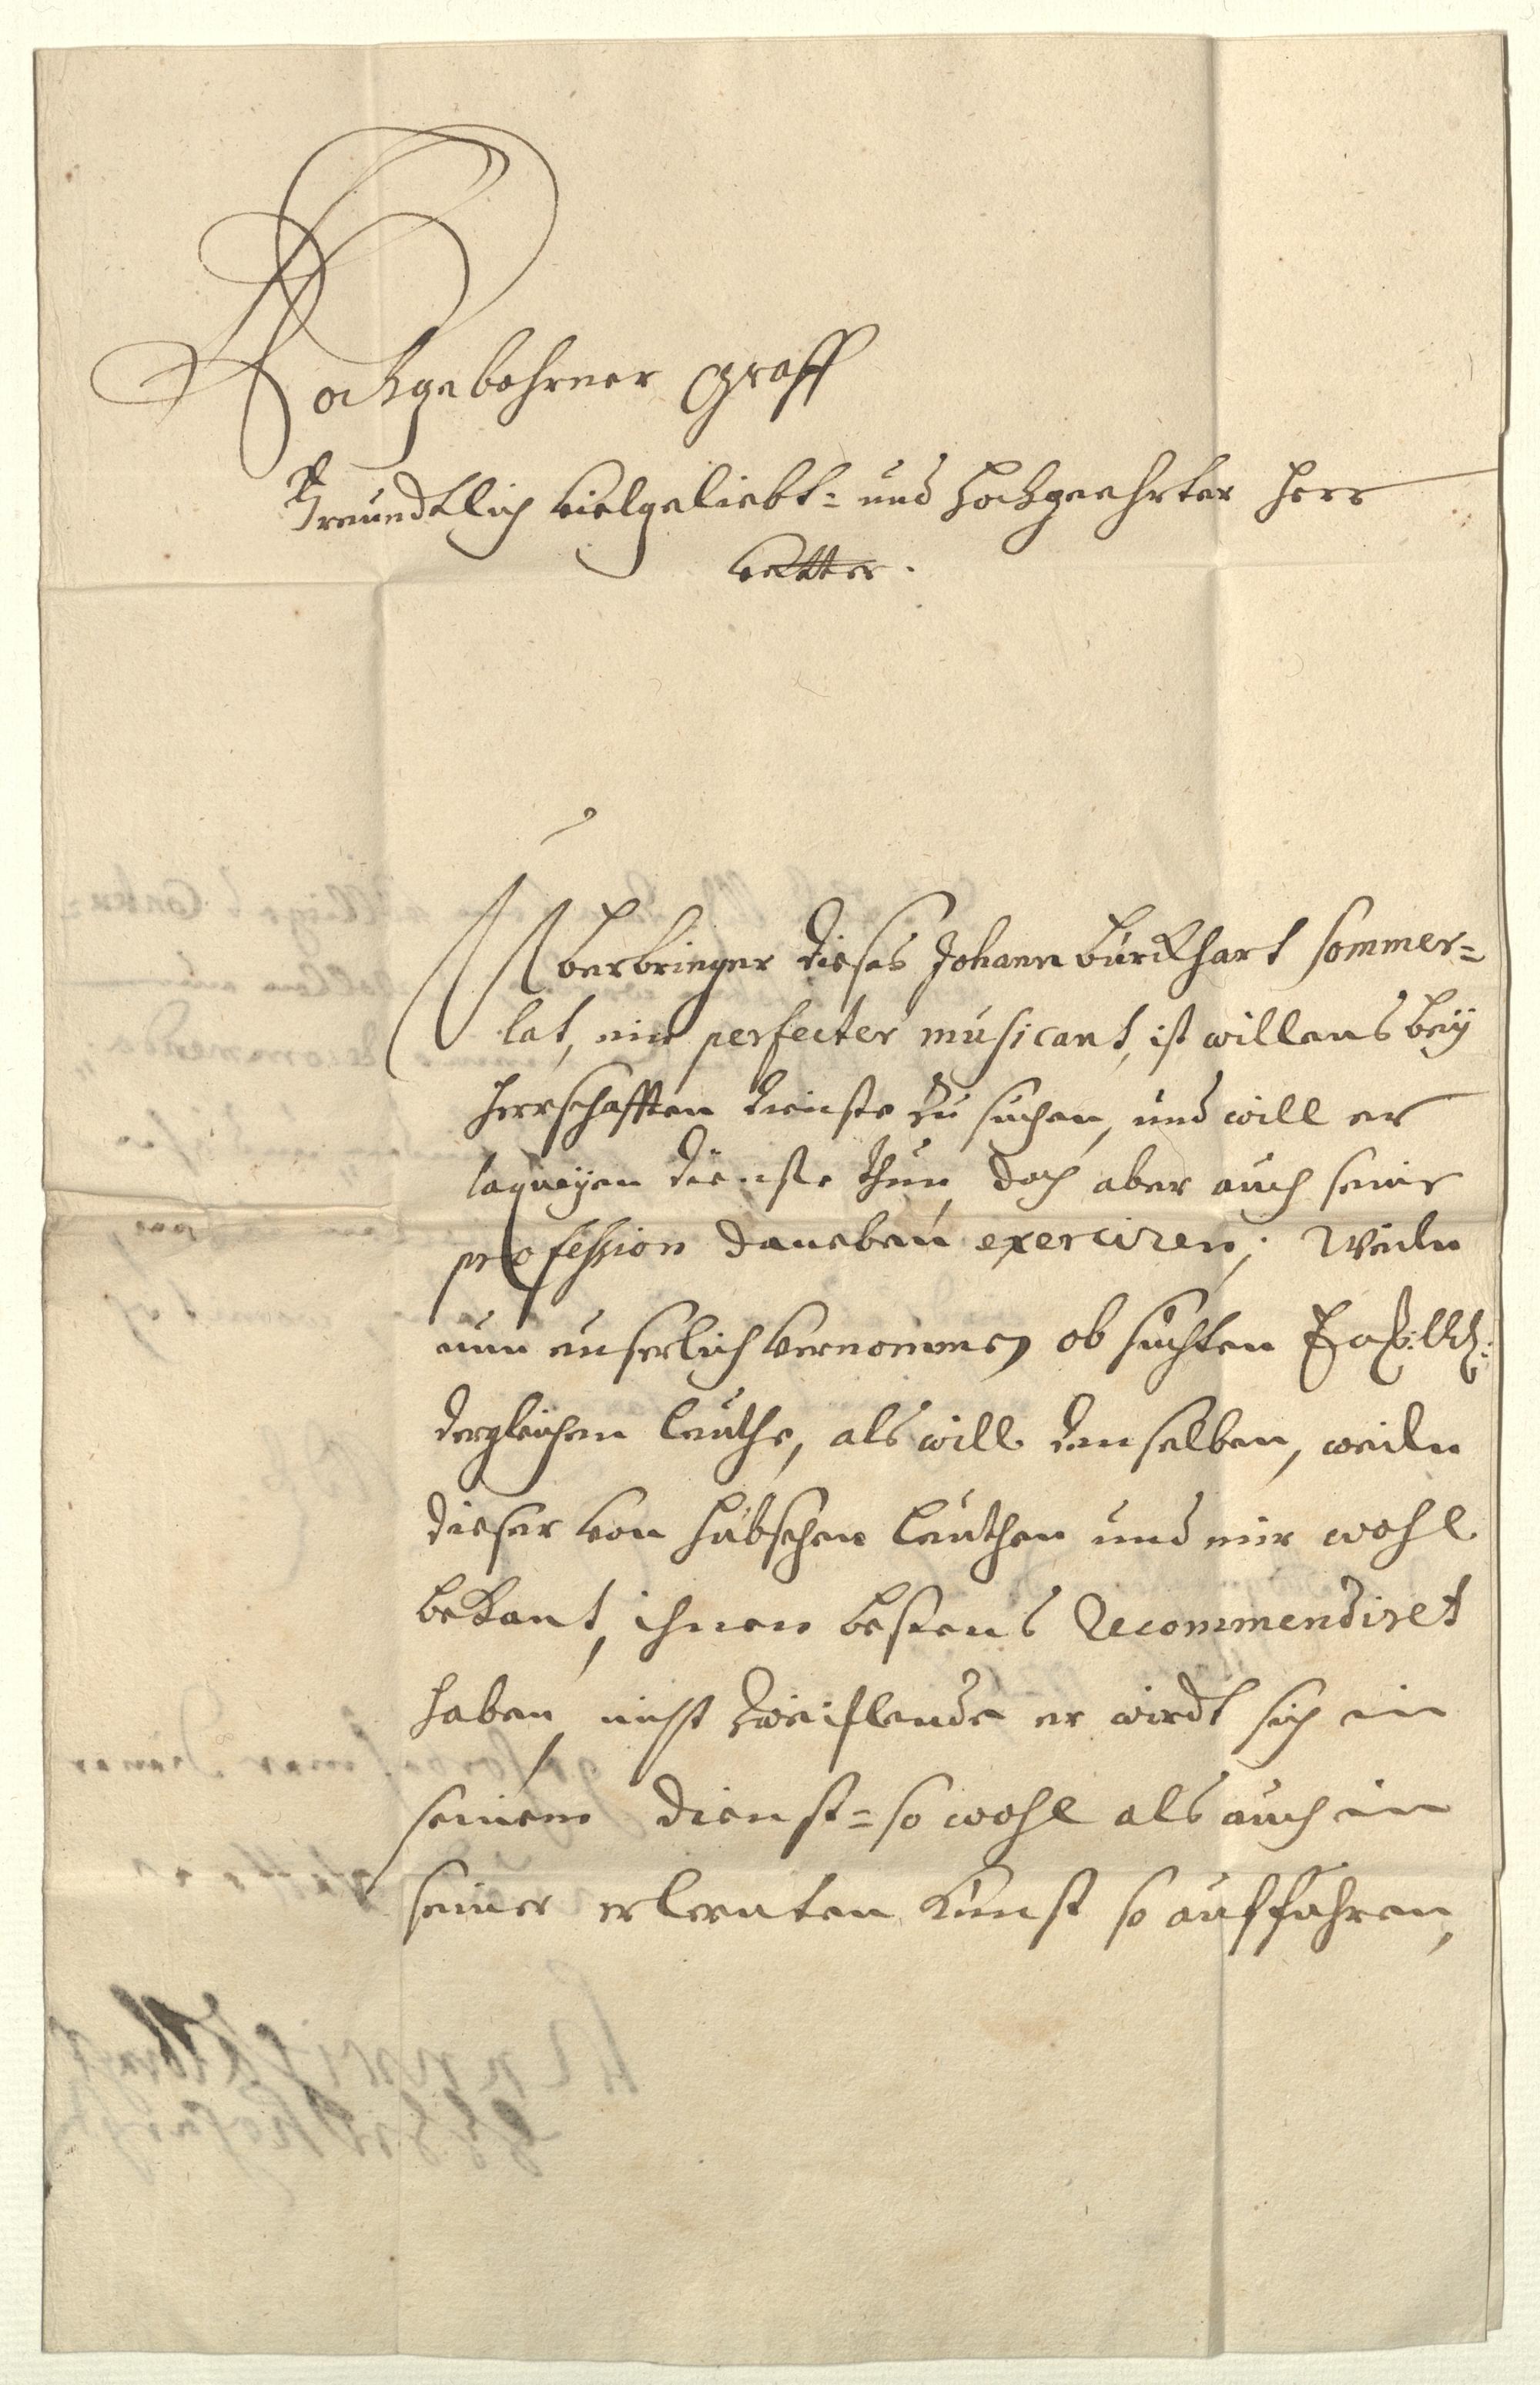 Hochgebohrner Graff
Freundtlich vielgeliebt= und hochgeehrter Herr
Vetter.
Uberbringer dieses Johann Burckhart Sommer=
lat, ein perfecter musicant, ist willens bey
Herrschafften dienste zu suchen, und will er
laqueyen dienste thun, doch aber auch seine
profession daneben exerciren; Weiln
nun eusserlich vernommen ob suchten
dergleichen leuthe, als will denselben, weiln
dieser von hübschen leuthen und mir wohl
bekant, ihnen bestens Recommendiret
haben, nicht zweiflende er wirdt sich in
seinem dienst= so wohl als auch in
seiner erlernten Kunst so aufführen,